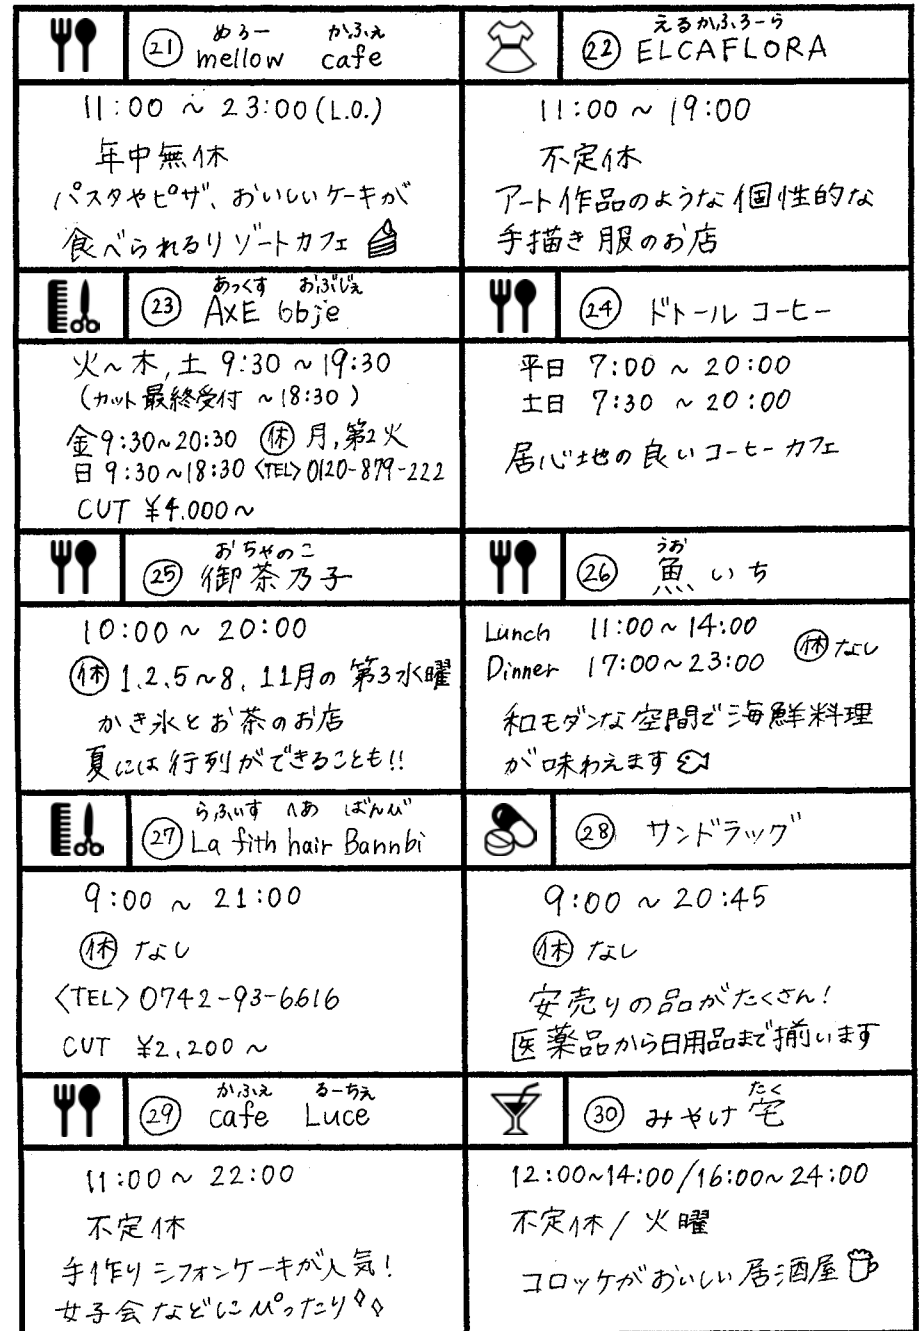 めろー かふぇ
㉑ mellow cafe
11:00 ~ 23:00(L.O.)
年中無休
パスタやピザ、おいしいケーキが
食べられるリゾートカフェ
えるかふろーら
㉒ ELCAFLORA
11:00 ~ 19:00
不定休
アート作品のような個性的な
手描き服のお店
あっくす おぶじぇ
㉓ AXE Obje
火~木,土 9:30 ~19:30
(カット最終受付 ~18:30)
金9:30~20:30 ㊡ 月,第2火
日9:30~18:30〈TEL〉0120-879-222
CUT ¥4.000~
㉔ ドトールコーヒー
平日 7:00 ~ 20:00
土日 7:30 ~ 20:00
居心地の良いコーヒーカフェ
おちゃのこ
㉕ 御茶乃子
10:00 ~ 20:00
㊡ 1.2.5~8.11月の第3水曜
かき氷とお茶のお店
夏には行列ができることも!!
うお
㉖ 魚いち
Lunch 11:00~14:00
Dinner 17:00~23:00 ㊡なし
和モダンな空間で海鮮料理
が味わえます
らふぃす へあ ばんび
㉗ La fith hair Bannbi
9:00 ~ 21:00
㊡ なし
〈TEL〉0742-93-6616
CUT ¥2.200~
㉘ サンドラッグ
9:00 ~ 20:45
㊡ なし
安売りの品がたくさん!
医薬品から日用品まで揃います
かふぇ るーちぇ
㉙ cafe Luce
11:00~ 22:00
不定休
手作りシフォンケーキが人気!
女子会などにぴったり
たく
㉚ みやけ宅
12:00~14:00/16:00~24:00
不定休/火曜
コロッケがおいしい居酒屋